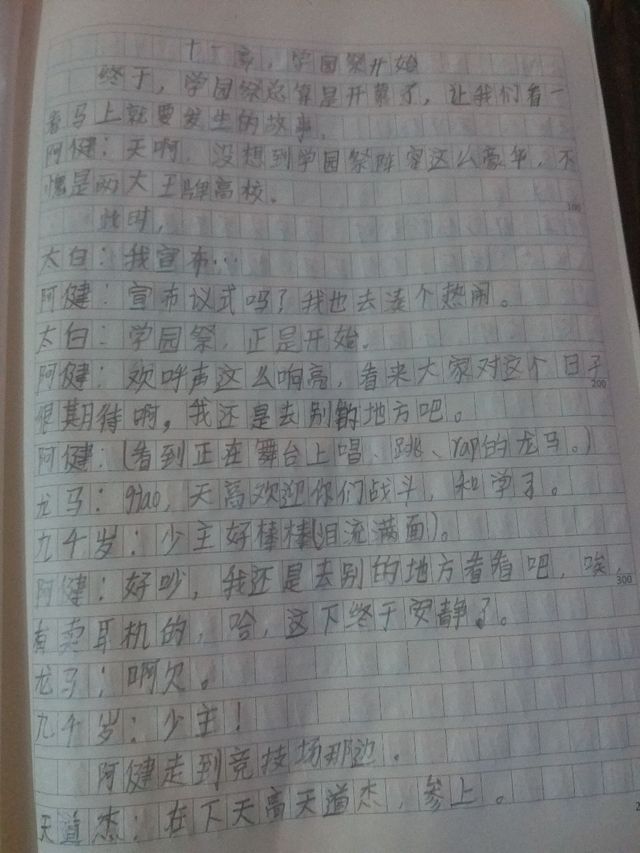 十一章,学园祭开始
终于,学园祭总算是开幕了,让我们看一
看马上就要发生的故事。
阿健:天啊,没想到学园祭阵容这么豪华,不
愧是两大王牌高校。
100
此时,
太白:我宣布…
阿健:宣布议式吗?我也去凑个热闹。
太白:学园祭,正是开始。
阿健:欢呼声这么响亮,看来大家对这个日子
200
很期待啊,我还是去别的地方吧。
阿健:(看到正在舞台上唱、跳、rap的龙马。)
龙马:giao,天高欢迎你们战斗,和学习。
九千岁:少主好棒棒(泪流满面)。
阿健:好吵,我还是去别的地方看看吧,唉,
300
有卖耳机的,哈,这下终于安静了。
龙马:啊欠。
九千岁:少主!
阿健走到竞技场那边。
天道杰:在下天高天道杰,参上。